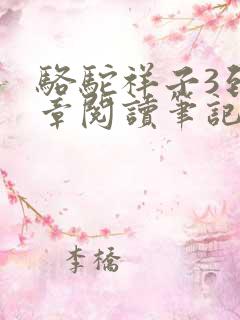 駱駝祥子3
章閱讀筆記
李橋